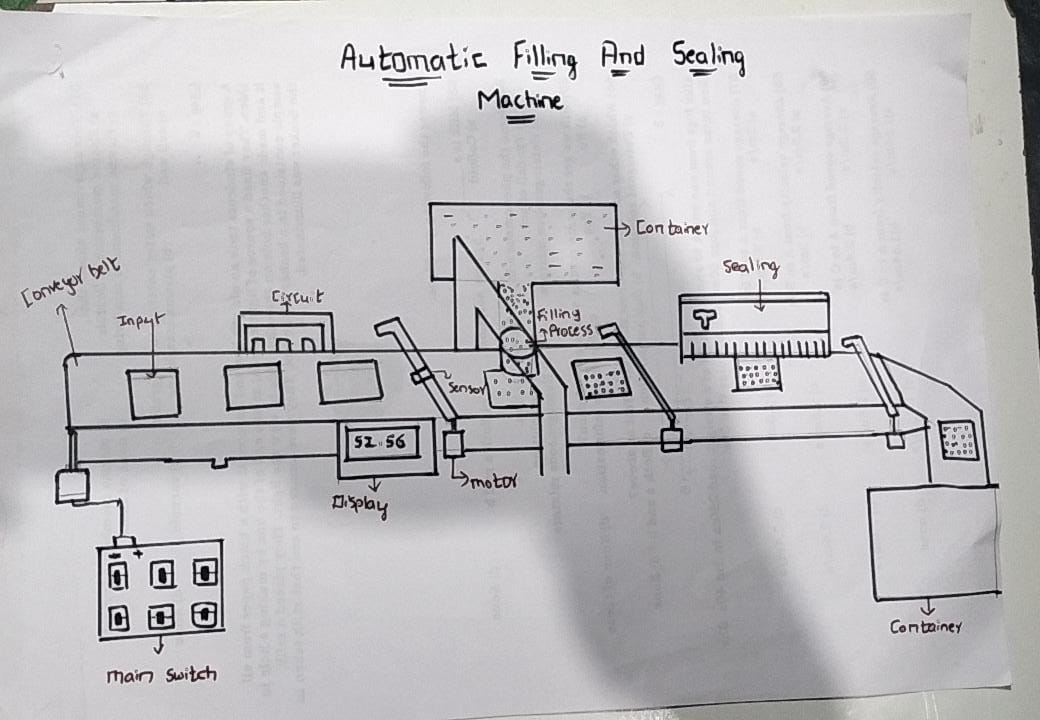 Automatic Filling And Sealing
Machine
Container
Sealing
Conveyor belt
Circuit
Input
Filling
Process
Sensor
52.56
motor
Display
- +
Container
Main switch